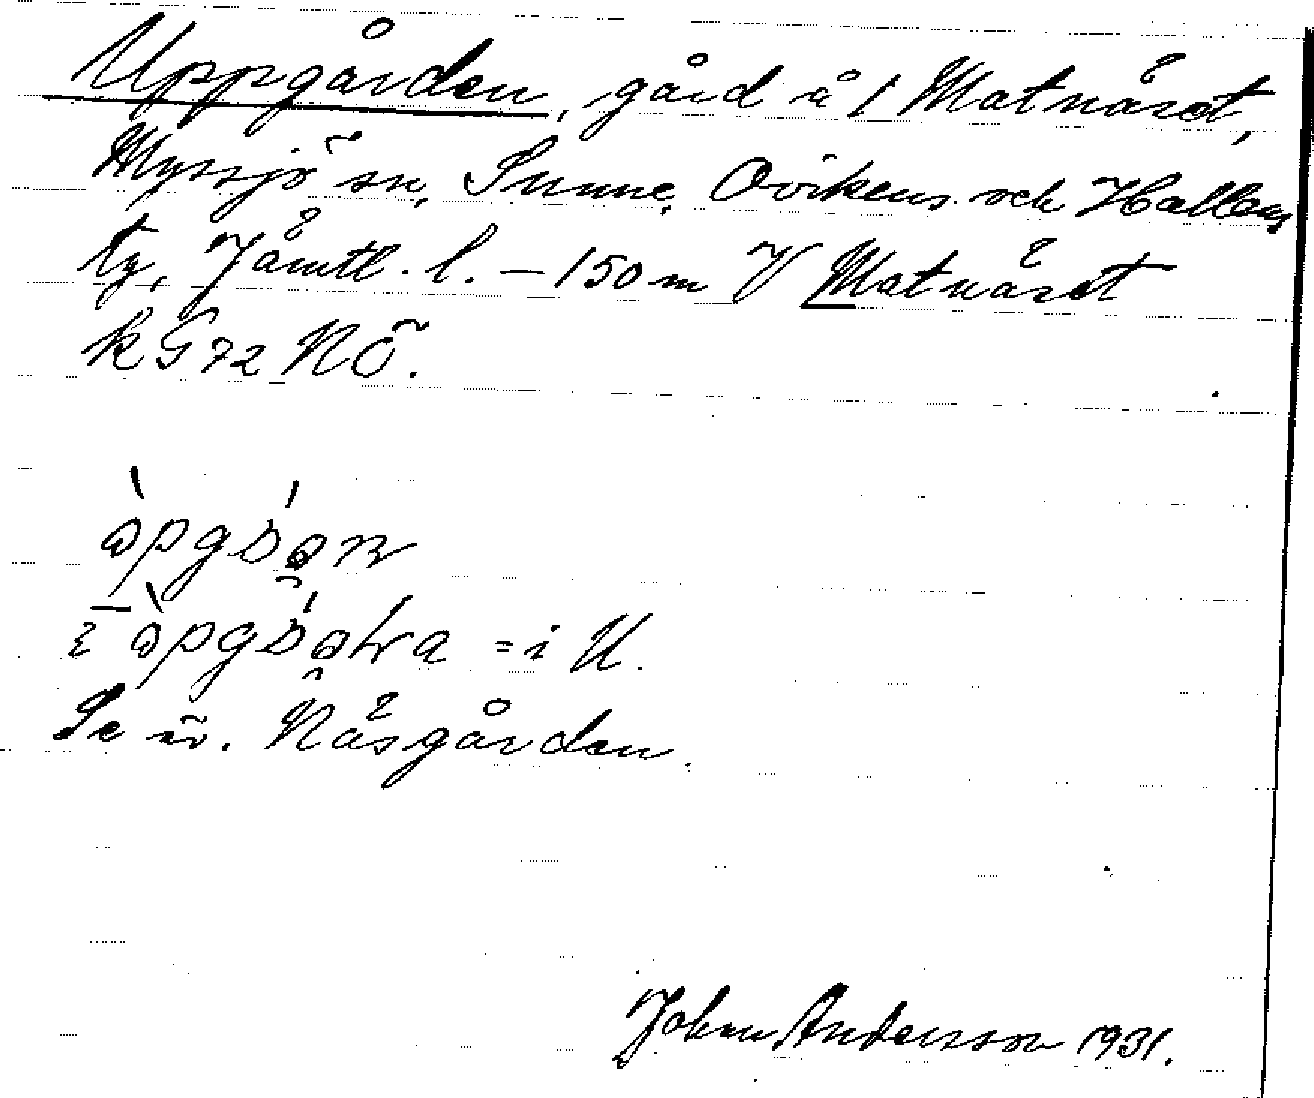 Uppgården, gård å 1 Matnäset,
Myssjö sn, Sunne, Ovikens och Hallens
tg, Jämtl. l. – 150 m V Matnäset
k G 72 NÖ.
= i U.
Se äv. Näsgården.
Johan Andersson 1931.